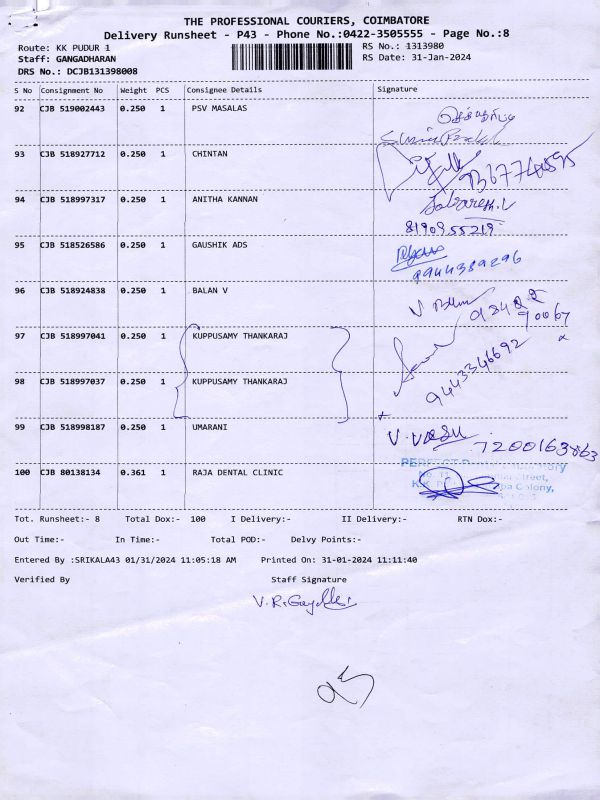 THE PROFESSIONAL COURIERS, COIMBATORE
Delivery Runsheet - P43 - Phone No.:0422-3505555 - Page No.:8
Route: KK PUDUR 1
RS No.: 1313980
Staff: GANGADHARAN
RS Date: 31-Jan-2024
DRS No.: DCJB131398008
S No Consignment No Weight PCS Consignee Details Signature
92 CJB 519002443 0.250 1 PSV MASALAS
93 CJB 518927712 0.250 1 CHINTAN
94 CJB 518997317 0.250 1 ANITHA KANNAN
8190955219
95 CJB 518526586 0.250 1 GAUSHIK ADS
9944389296
96 CJB 518924838 0.250 1 BALAN V
97 CJB 518997041 0.250 1 KUPPUSAMY THANKARAJ
98 CJB 518997037 0.250 1 KUPPUSAMY THANKARAJ
9443346692
99 CJB 518998187 0.250 1 UMARANI
V. VASU 7200163863
100 CJB 80138134 0.361 1 RAJA DENTAL CLINIC
PERFECT
Tot. Runsheet:- 8 Total Dox:- 100 I Delivery:- II Delivery:- RTN Dox:-
Out Time:- In Time:- Total POD:- Delvy Points:-
Entered By :SRIKALA43 01/31/2024 11:05:18 AM Printed On: 31-01-2024 11:11:40
Verified By Staff Signature
95